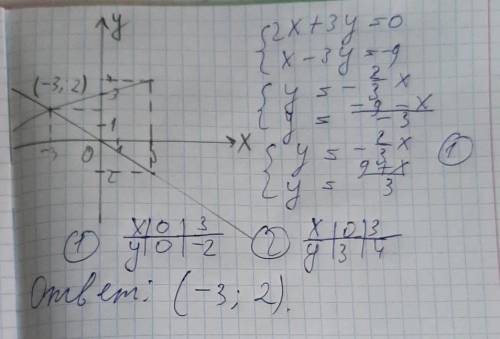 y
(-3; 2)
4
3
1
-3 0 1 3 x
-2
{ 2x+3y=0
{ x-3y=-9
{ y = -2/3 x
{ y = (-9-x)/-3
{ y = -2/3 x ①
{ y = (9+x)/3
① x | 0 | 3
y | 0 | -2
② x | 0 | 3
y | 3 | 4
Ответ: (-3; 2).